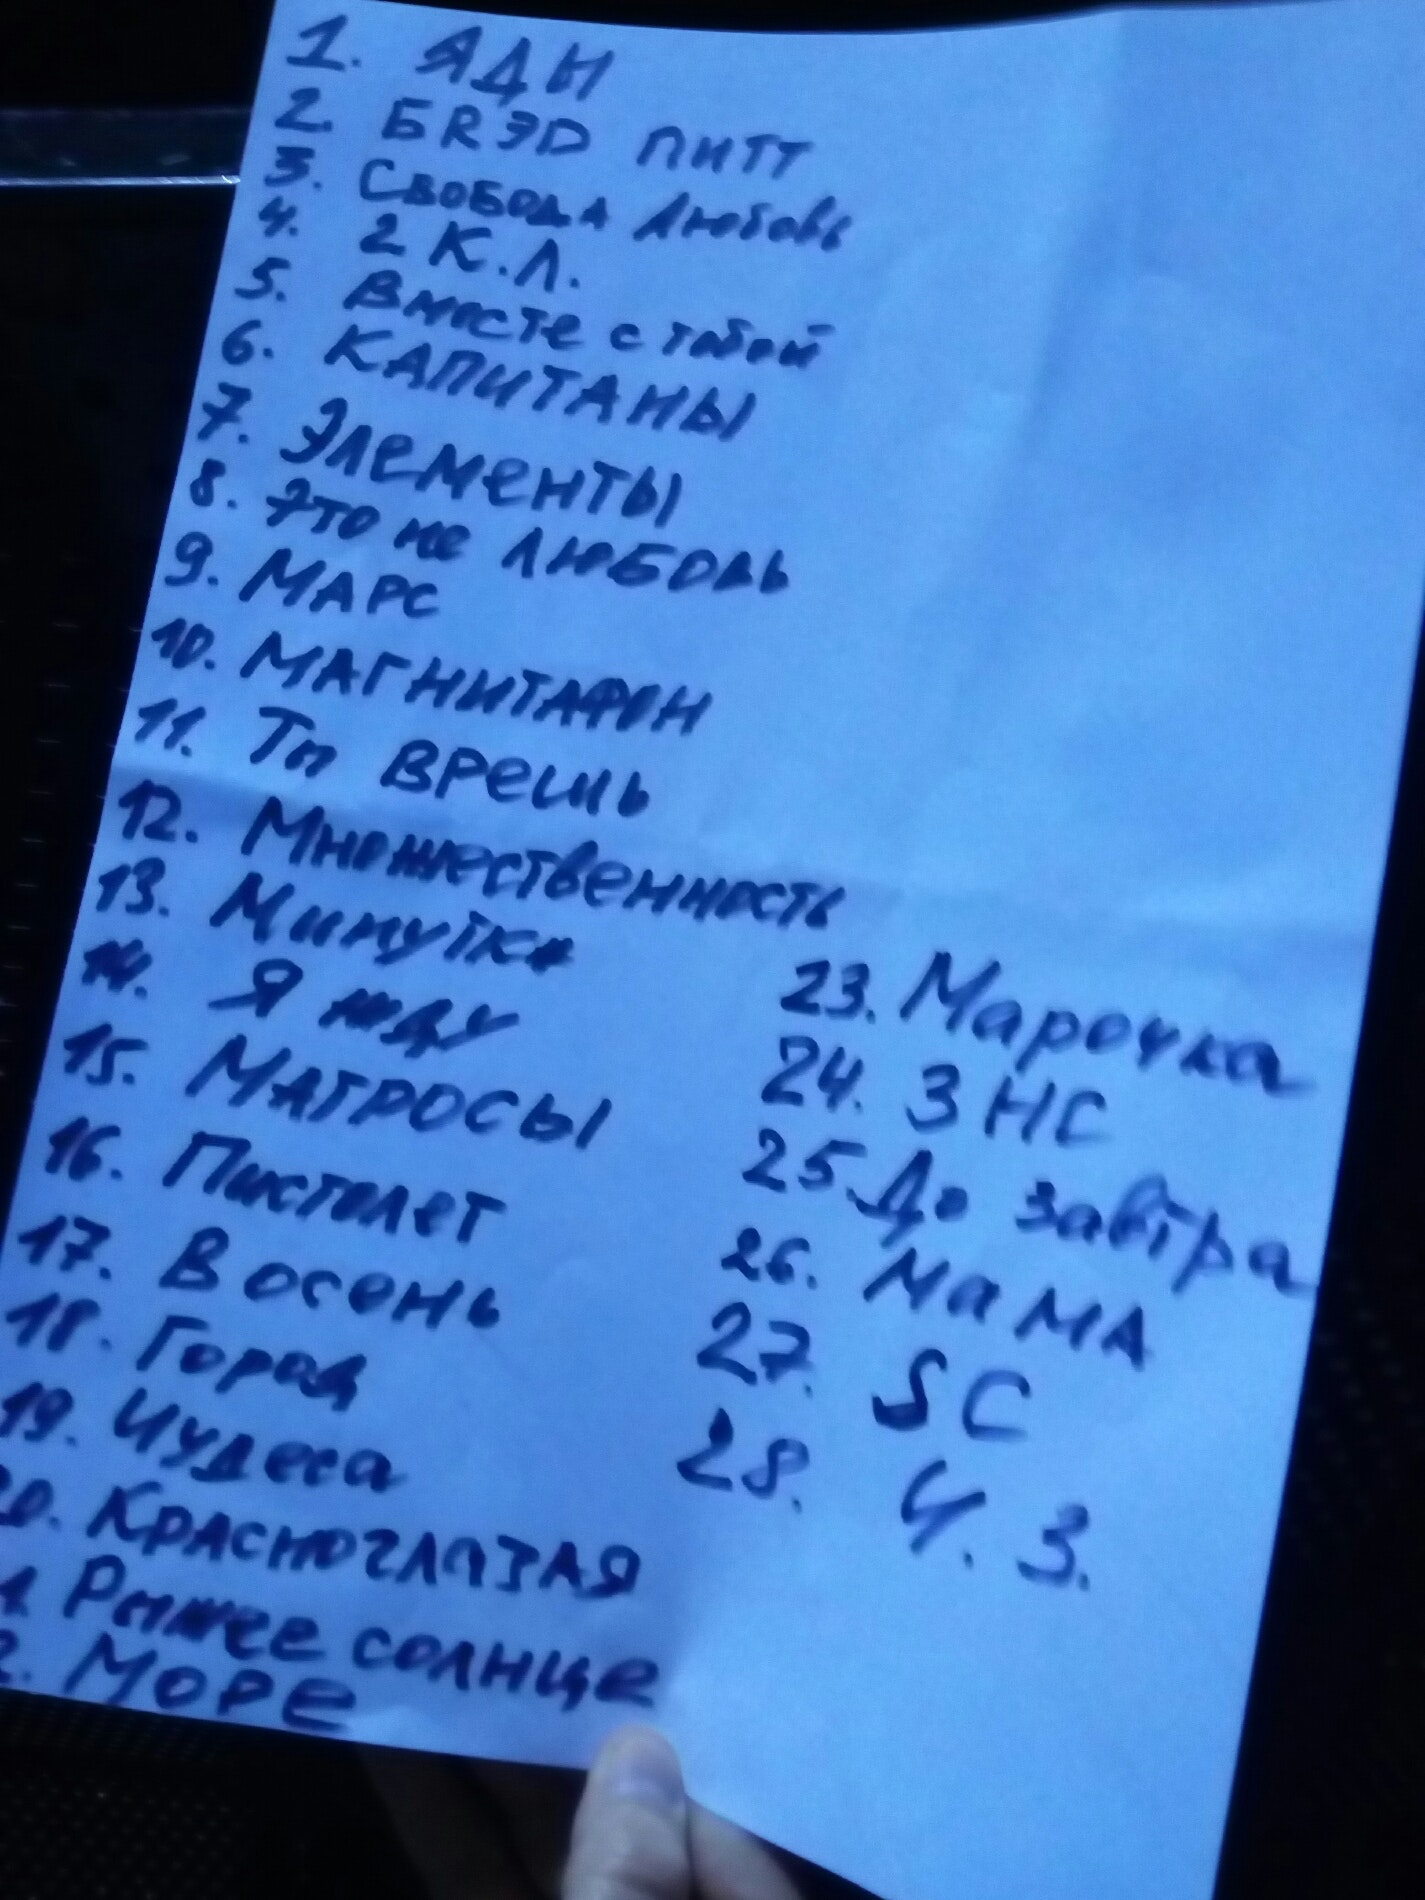 1. ЯДЫ
2. БRЭD ПИТТ
3. СВОБОДА Любовь
4. 2 К.Л.
5. Вместе с тобой
6. КАПИТАНЫ
7. Элементы
8. Это не Любовь
9. МАРС
10. МАГНИТАФОН
11. Ты врешь
12. Множественность
13. Минутка
14. Я жду
15. МАТРОСЫ
16. Пистолет
17. В осень
18. Город
19. Чудеса
20. КРАСНОГЛАЗАЯ
1. Рыжее солнце
2. МОРЕ
23. Марочка
24. ЗНС
25. До завтра
26. МаМА
27. SC
28. Ч. З.